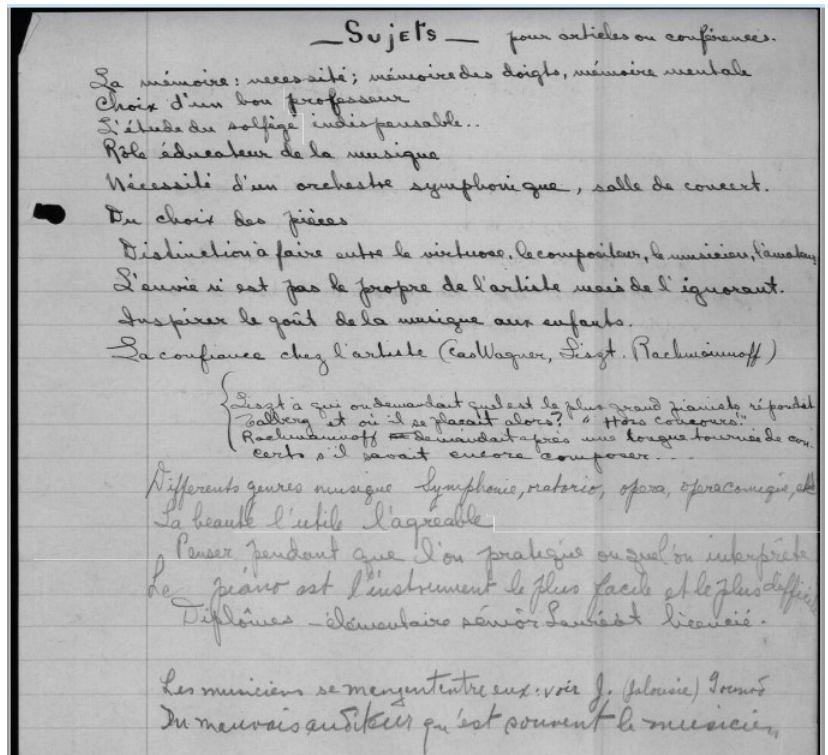 Sujets pour articles ou conférences.
La mémoire: necessité; mémoire des doigts, mémoire mentale
Choix d'un bon professeur
L'étude du solfège indispensable..
Rôle éducateur de la musique
Nécessité d'un orchestre symphonique, salle de concert.
Du choix des pièces
Distinction à faire entre le virtuose, le compositeur, le musicien, l'amateur
L'envie n'est pas le propre de l'artiste mais de l'ignorant.
Inspirer le goût de la musique aux enfants.
La confiance chez l'artiste (cas Wagner, Liszt. Rachmaninoff)
Liszt à qui on demandait quel est le plus grand pianiste répondit
Talberg et où il se plaçait alors? "Hors concours."
Rachmaninoff demandait après une longue tournée de con-
certs s'il savait encore composer....
Differents genres musique Symphonie, oratorio, opera, opera comique, etc
La beauté l'utile l'agreable
Penser pendant que l'on pratique ou quel'on interprète
Le piano est l'instrument le plus facile et le plus difficile
Diplômes - élémentaire séniór Lauréat licencié.
Les musiciens se mangent entre eux: voir J. (jalousie) Gounod
Du mauvais auditeur qu'est souvent le musicien